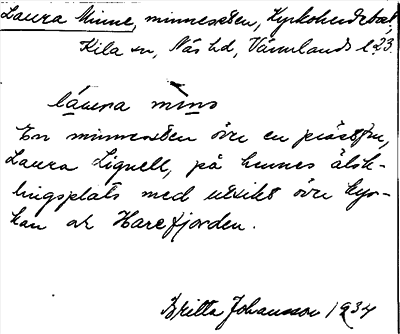 Laura Minne, minnessten, Kyrkoherdebost,
Kila sn, Näs hd, Värmlands l 23.
láura mìns
En minnessten över en prästfru,
Laura Lignell, på hennes älsk-
lingsplats med utsikt över kyr-
kan och Harefjorden.
Britta Johansson 1934